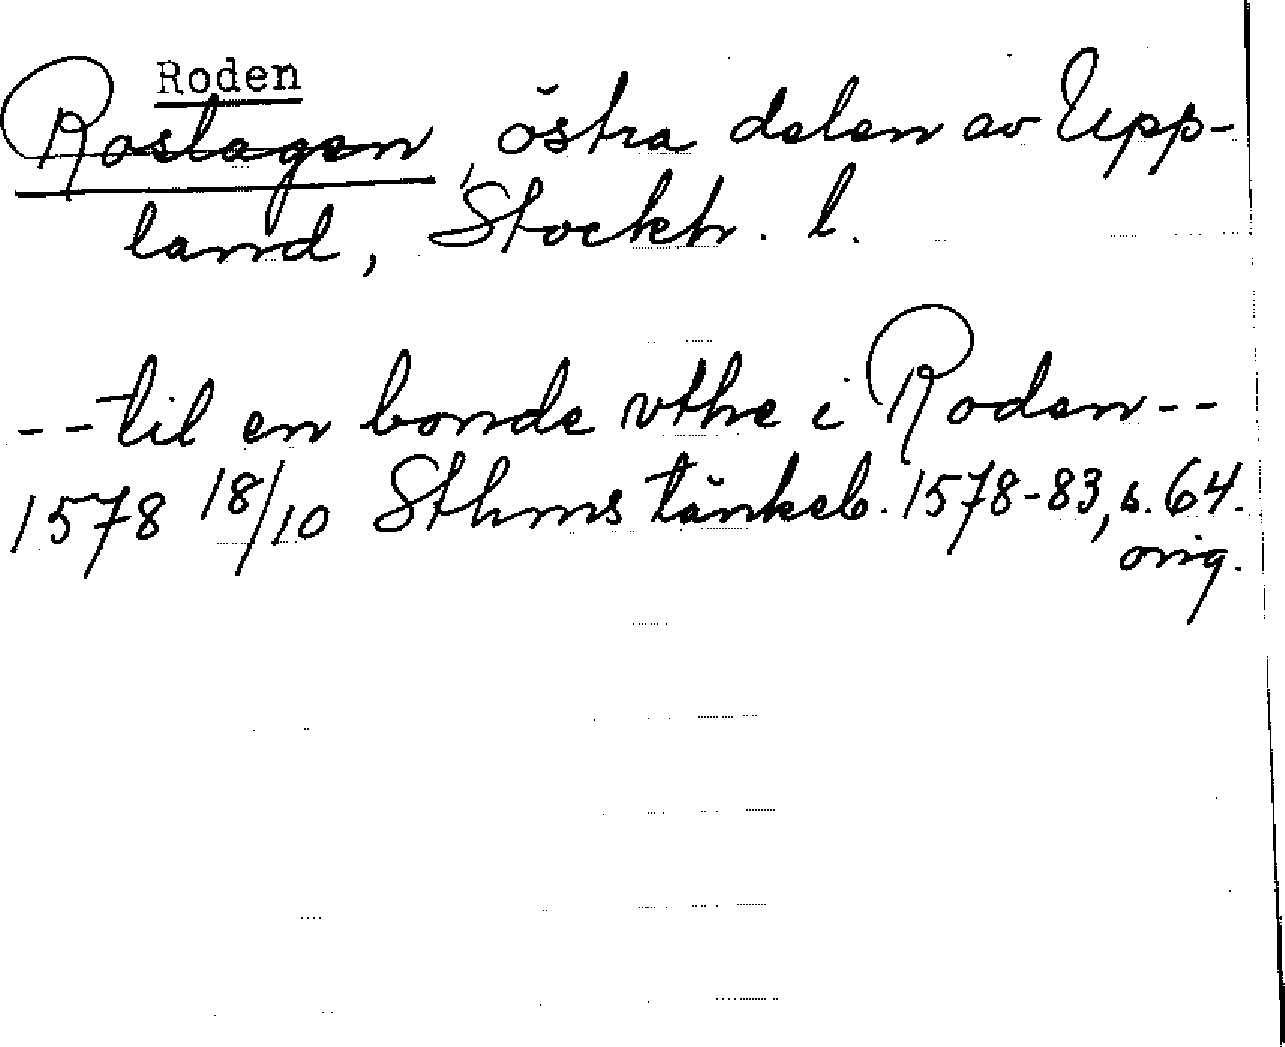 Roden
Roslagen, östra delen av Upp-
land, Stockh. l.
--til en bonde vthe i Roden--
1578 18/10 Sthms tänkeb. 1578-83, s. 64.
orig.